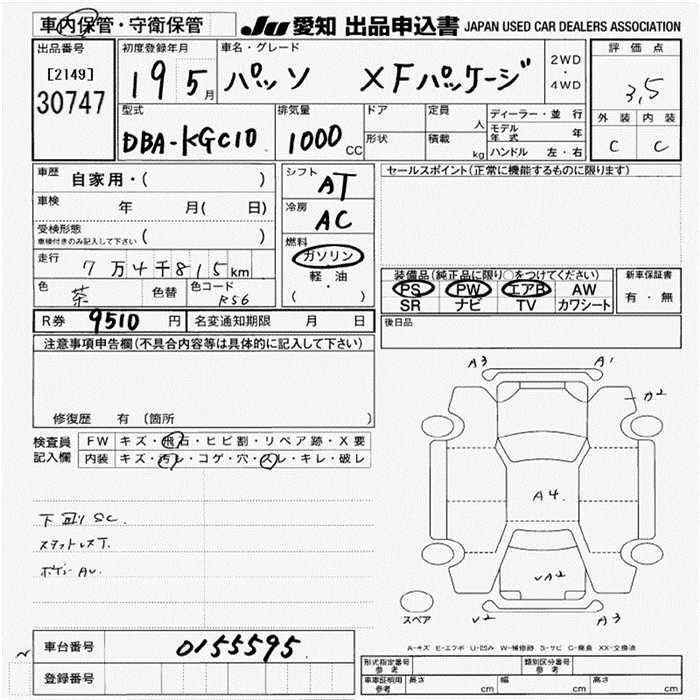 車内保管・守衛保管 JU 愛知 出品申込書 JAPAN USED CAR DEALERS ASSOCIATION
出品番号 初度登録年月 車名・グレード 2WD・4WD 評価点
[2149] 30747 19 5月 パッソ XFパッケージ 3,5
型式 排気量 ドア 定員 人 ディーラー・並行 外装 内装
DBA-KGC10 1000CC 形状 積載 kg モデル年式 年 C C
ハンドル 左・右
車歴 自家用・( ) シフト AT セールスポイント(正常に機能するものに限ります)
車検 年 月( 日) 冷房 AC
受検形態 車検付きのみ記入して下さい ( ) 燃料 ガソリン
走行 7万4千815km 軽・油 装備品(純正品に限り○をつけてください) 新車保証書
色 茶 色替 色コード R56 ( ) PS PW エアB AW 有・無
SR ナビ TV カワシート
R券 9510円 名変通知期限 月 日 後日品
注意事項申告欄(不具合内容等は具体的に記入して下さい)
修復歴 有 (箇所 )
検査員 FW キズ・飛石・ヒビ割・リペア跡・X要
記入欄 内装 キズ・汚レ・コゲ・穴・スレ・キレ・破レ
A3 A1
カ2
A4.
下回りSC.
スタットレスT.
ボデーAU.
VA2
V2 A3
スペア
A-キズ E-エクボ U-凹み W-補修跡 S-サビ C-腐食 XX-交換済
車台番号 0155595
登録番号
形式指定番号 参考 類別区分番号 参考
車庫証明用 参考 長さ cm 幅 cm 高さ cm